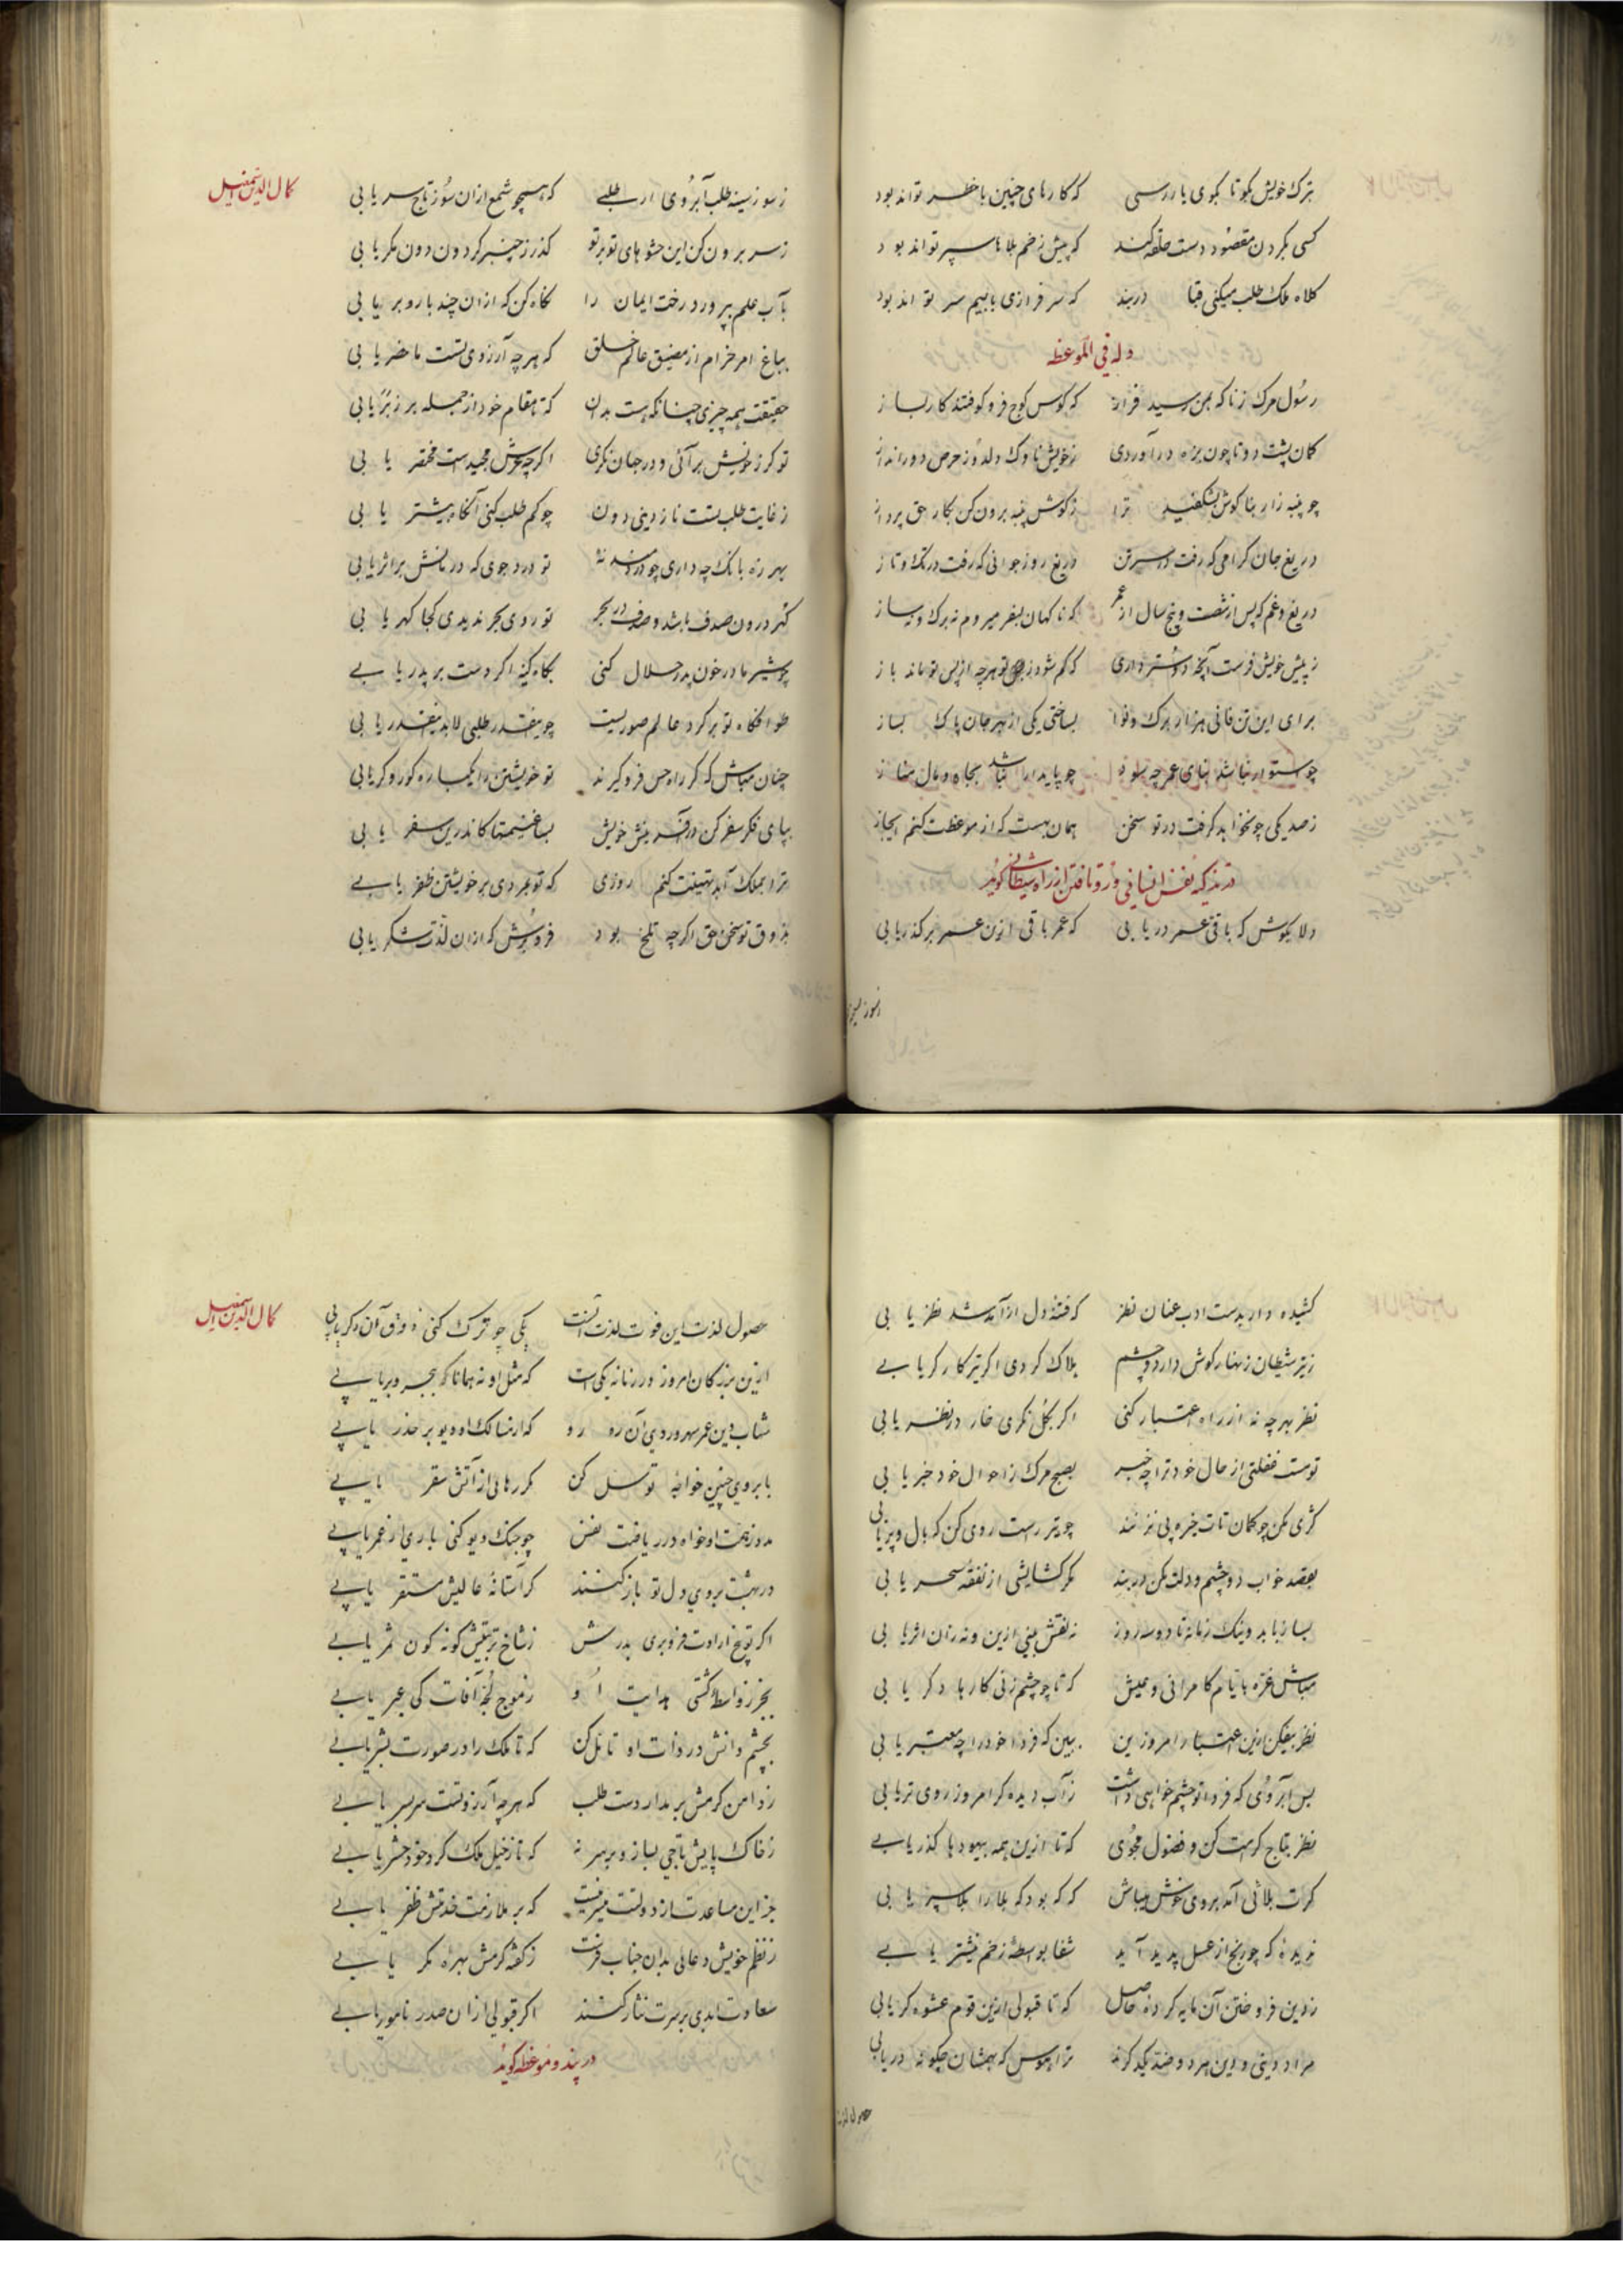 بترک خویش بگو تا بکوی یار رسی که کارهای چنین با خطر تواند بود
کسی بگردن مقصود دست حلقه کند که پیش زخم بلاها سپر تواند بود
کلاه ملک طلب میکنی قبا دربند که سرفرازی بابیم سر تواند بود
وله فی الموعظه
رسول مرک زناکه بمن رسید فراز که کوس کوچ فرو کوفتند کار بساز
کمان پشت دوتا چون بزه درآوردی زخویش ناوک دلدوز حرص دور انداز
چو پنبه زار بناکوش بشکفید ترا زکوش پنبه برون کن بکار حق پرداز
دریغ جان کرامی که رفت در سر تن دریغ روز جوانی که رفت در تک و تاز
دریغ و غم که پس از شصت و پنج سال از عمر که ناکهان بسفر میروم نه برک و نه ساز
زپیش خویش فرست آنچه دوستر داری که کم شود ز تو هرچه از پس تو ماند باز
برای این تن فانی هزار برک و نوا بساختی یکی از بهر جان پاک بساز
چو استوار نباشد بنای عمر چه سود چو پایدار نباشد بجاه و مال مناز
زصد یکی چو نخواهد کرفت در تو سخن همان بهست که از موعظت کنم ایجاز
در تزکیه نفس انسانی و رو تافتن از راه شیطانی کوید
دلا بکوش که باقی عمر دریابی که عمر باقی ازین عمر بر کذر یابی
زسوز سینه
کمال الدین اسمعیل
زسوز سینه طلب آبروی ار طلبی که همچو شمع ازان سوز تاج سر یابی
زسر برون کن این حشوهای تو بر تو کذر زچنبر کردون دون مکر یابی
بآب علم بپرور درخت ایمان را نکاه کن که ازان چند بار و بر یابی
بباغ امر خرام از مضیق عالم خلق که هرچه آرزوی تست ماحضر یابی
حقیقت همه چیزی چنانکه هست بدان که تا مقام خود از جمله بر زبر یابی
تو کر زخویش برآئی و در جهان نکری اکرچه عرش مجیدست مختصر یابی
زغایت طلب تست نازدینی دون چو کم طلب کنی آنکاه بیشتر یابی
بهرزه بانک چه داری چو درد نه تو درد جوی که درمانش بر اثر یابی
کهر درون صدف باشد و صدف در بحر تو روی بحر ندیدی کجا کهر یابی
چو شیر مادر خون پدر حلال کنی بکاه کینه اکر دست بر پدر یابی
طوافکاه تو بر کرد عالم صوریست چو مختصر طلبی لابد مختصر یابی
چنان مباش که کر راه حس فرو کیرند تو خویشتن را یکباره کور و کر یابی
بپای فکر سفر کن در آفرینش خویش بسا غنیمتها کاندرین سفر یابی
ترا بملک ابد تهنیت کنم روزی که تو بمردی بر خویشتن ظفر یابی
بذوق تو سخن حق اکرچه تلخ بود فرو برش که ازان لذت شکر یابی
کشیده دار بدست ادب عنان نظر که فتنه دل از آمد شد نظر یابی
زتیر شیطان زنهار کوش دار دو چشم هلاک کردی اکر تیر کارکر یابی
نظر بهرچه نه از راه اعتبار کنی اکر بکل نکری خار در نظر یابی
تو مست غفلتی از حال خود ترا چه خبر بصبح مرک زاحوال خود خبر یابی
کژی مکن چو کمان تات خیره پی نزنند چو تیر راست روی کن که بال و پر یابی
بقصد خواب دو چشم و دلت مکن در بند مکر کشایشی از نفقه سحر یابی
بسا زبا بد و نیک زمانه تا دو سه روز نه نقش بینی ازین و نه زان اثر یابی
مباش غره بایام کامرانی و عیش که تا چو چشم زنی کارها دکر یابی
نظر بیفکن ازین اعتبار امروزین ببین که فردا خود را چه معتبر یابی
بس آبروی که فردا تو چشم خواهی داشت زآب دیده کر امروز روی تر یابی
نظر بتاج کرامت کن و فضول مجوی که تا ازین همه بیهودها کذر یابی
کرت بلائی آمد بروی خوش میباش که که بود که بلا را بلا سپر یابی
ندیده که چو رنج از عسل پدید آید شفا بواسطه زخم نیشتر یابی
زدین فروختن آن مایه کرده حاصل که تا قبولی ازین قوم عشوه کر یابی
مراد دینی و دین هر دو ضد یکدکرند ترا هوس که بهمشان چکونه دریابی
حصول لذت
کمال الدین اسمعیل
حصول لذت این فوت لذت آنست یکی چو ترک کنی ذوق آن دکر یابی
ازین بزرکان امروز در زمانه یکی است که مثل او نه همانا که بحر و بر یابی
شهاب دین عمر سهروردی آن ره رو که از مسالک او دیو بر حذر یابی
بابروی چنین خواجه توسل کن کر رهائی از آتش سقر یابی
مدد زهمت او خواه در ریاضت نفس چو جنک دیو کنی یاری از عمر یابی
در بهشت بروی دل تو باز کنند کر آستانه عالیش مستقر یابی
اکر تو بیخ ارادت فرو بری بدرش زشاخ تربیتش کونه کون ثمر یابی
بجز زواسطه کشتی هدایت او زموج لجه آفات کی عبر یابی
بچشم دانش در ذات او تامل کن که تا ملک را در صورت بشر یابی
زدامن کرمش بر مدار دست طلب که هرچه آرزوتست سربسر یابی
زخاک پایش تاجی بساز و بر سر نه که تا زخیل ملک کرد خود حشر یابی
جز این مساعدت از دولتت میسر نیست که بر ملازمت خدمتش ظفر یابی
زنظم خویش دعائی بدان جناب فرست زکفته کرمش بهره مکر یابی
سعادت ابدی بر سرت نثار کنند اکر قبولی ازان صدر نامور یابی
در پند و موعظه کوید